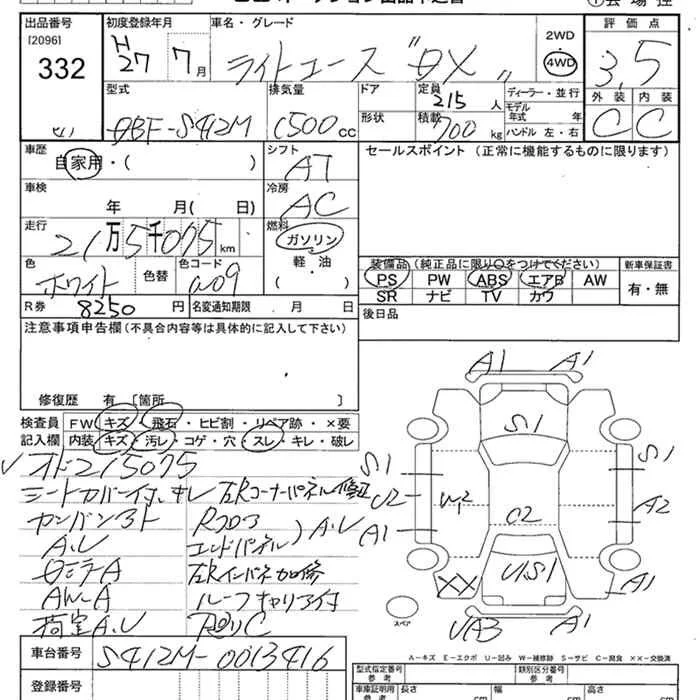 出品番号 初度登録年月 車名・グレード 2WD 評価点
[2096] H27 7月 ライトエース "DX" 4WD 3.5
332
型式 排気量 ドア 定員 人 ディーラー・並行 外装 内装
DBF-S412M 1500cc 形状 積載 700kg モデル年式 年 C C
ハンドル 左・右
車歴 シフト セールスポイント (正常に機能するものに限ります)
自家用・( ) AT
車検 冷房
年 月( 日) AC
走行 燃料
21万5千075km ガソリン
軽・油
( )
色 色替 色コード
ホワイト W09
装備品 (純正品に限り○をつけてください) 新車保証書
PS PW ABS エアB AW 有・無
SR ナビ TV カワ
R券 8250円 名変通知期限 月 日 後日品
注意事項申告欄 (不具合内容等は具体的に記入して下さい)
修復歴 有 [箇所 ]
検査員 FW キズ・飛石・ヒビ割・リペア跡・×要
記入欄 内装・キズ・汚レ・コゲ・穴・スレ・キレ・破レ
オド215075
シートカバー付、キレ 左Rコーナーパネル修正
カンバン跡 Rフロア
A.U エンドパネル) A.U
左Rインパネ加修
AW-A ルーフキャリア付
荷室A.U 下廻りC
A1 A1
S1
S1 S1
U2 W2 A2
A1 U2
U.S1
XX A1
UA3 A1
スペア
A-キズ E-エクボ U-凹み W-補修跡 S-サビ C-腐食 ××-交換済
車台番号 S412M-0013416
登録番号
型式指定番号 参考 類別区分番号 参考
車庫証明用 参考 長さ cm 幅 cm 高さ cm